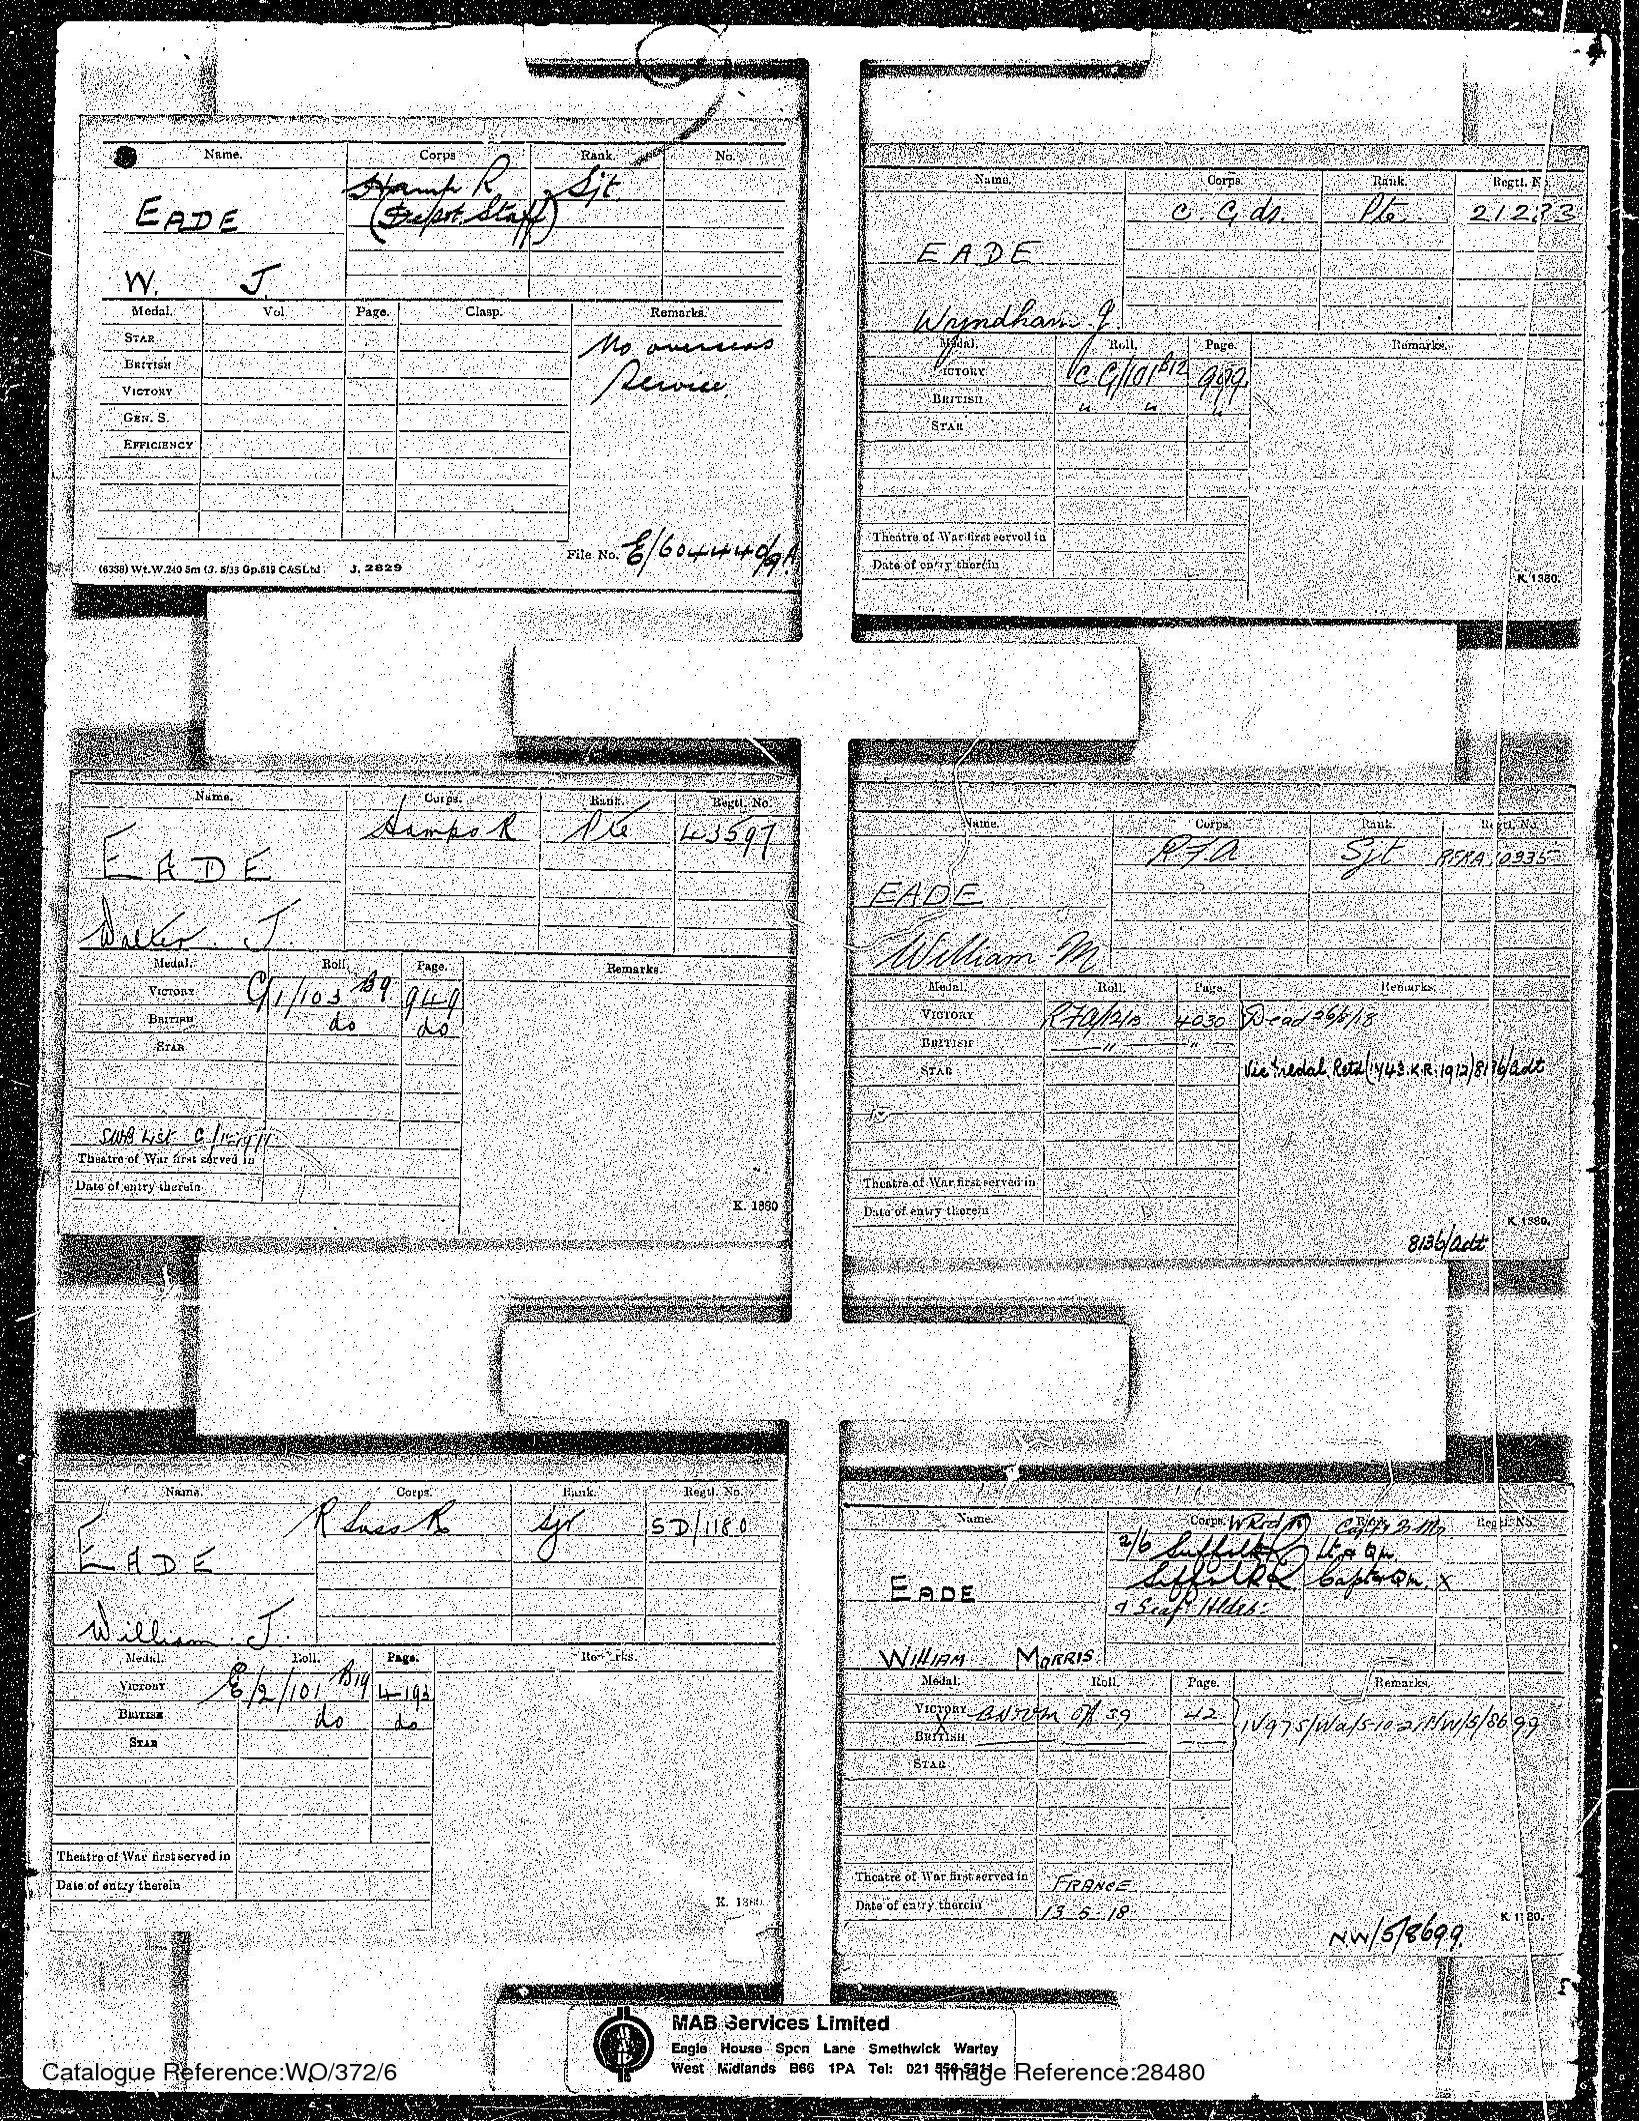 Name. Corps Rank. No.
EADE Hamp R Sjt.
(Depot Staff)
W. J.
Medal. Vol Page. Clasp. Remarks.
STAR No overseas
BRITISH Service.
VICTORY
GEN. S.
EFFICIENCY
File No. E/604440/9A
(6338) Wt.W.240 5m (3. 5/33 Gp.519 C&SLtd. J. 2829
Name. Corps. Rank. Regtl. N
C. Gds. Pte 21233
EADE
Wyndham J
Medal. Roll. Page. Remarks.
VICTORY C G/101 B12 999
BRITISH " " "
STAR
Theatre of War first served in
Date of entry therein
K. 1380.
Name. Corps. Rank. Regtl. No.
Hamps R Pte 43597
EADE
Walter. J.
Medal. Roll. Page. Remarks.
VICTORY G/1/103 B9 949
BRITISH do do
STAR
SWB List C/
Theatre of War first served in
Date of entry therein
K. 1380
Name. Corps. Rank. Regtl. No.
RFA Sjt 0335
EADE
William M
Medal. Roll. Page. Remarks.
VICTORY RFA/ 4030 Dead
BRITISH " "
STAR Vic Medal Retd (1743.K.R.1912) 8136/adt
Theatre of War first served in
Date of entry therein
K. 1380.
8136/adt
Name. Corps. Rank. Regtl. No.
R Suss R Sjt SD/1180
EADE
William J.
Medal. Roll. Page. Remarks.
VICTORY E/2/101 B19 4193
BRITISH do do
STAR
Theatre of War first served in
Date of entry therein
K. 1380.
Name. Corps. Rank. Regtl. No.
2/6 Suffolk R Lt & Qm
Suffolk R Capt & Qm. X
EADE & Seaf Hldrs:
WILLIAM MORRIS.
Medal. Roll. Page. Remarks.
VICTORY Off 39 42 IV975/Wa/5-10-21 NW/5/8699
BRITISH
STAR
Theatre of War first served in FRANCE
Date of entry therein 13-5-18
K. 1380.
NW/5/8699.
MAB Services Limited
Eagle House Spon Lane Smethwick Warley
West Midlands B66 1PA Tel: 021
Catalogue Reference:WO/372/6
Image Reference:28480